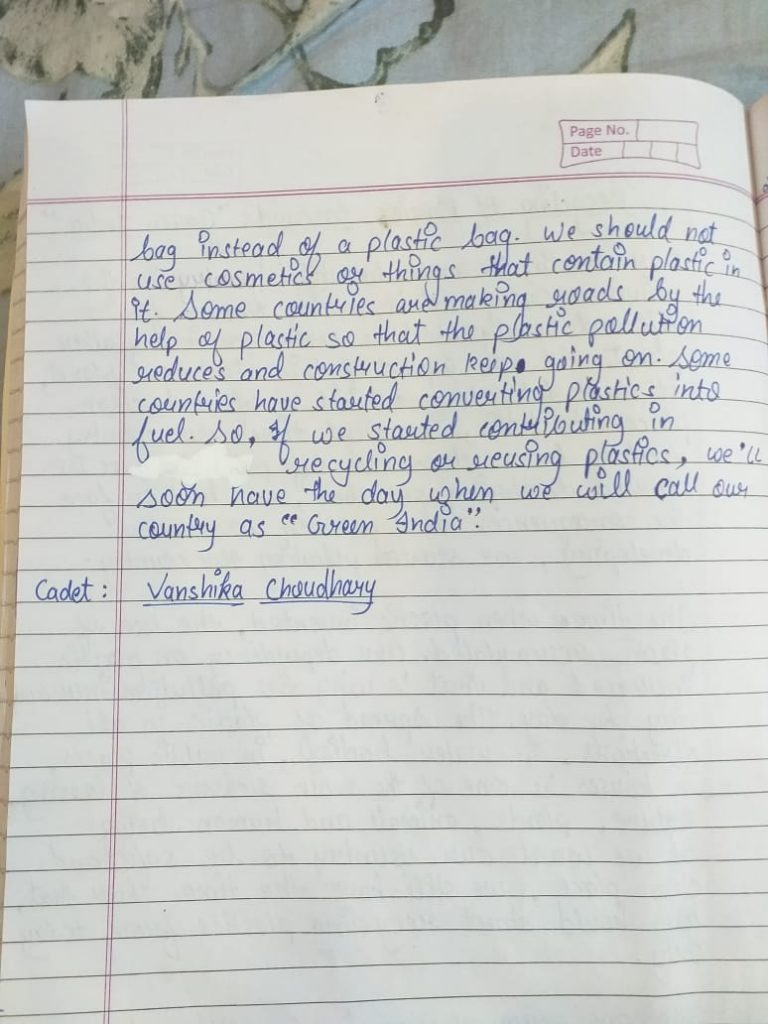 Page No.
Date
bag instead of a plastic bag. We should not
use cosmetics or things that contain plastic in
it. Some countries are making roads by the
help of plastic so that the plastic pollution
reduces and construction keep going on. Some
countries have started converting plastics into
fuel. So, If we started contributing in
recycling or reusing plastics, we'll
soon have the day when we will call our
country as "Green India".
Cadet : Vanshika Choudhary